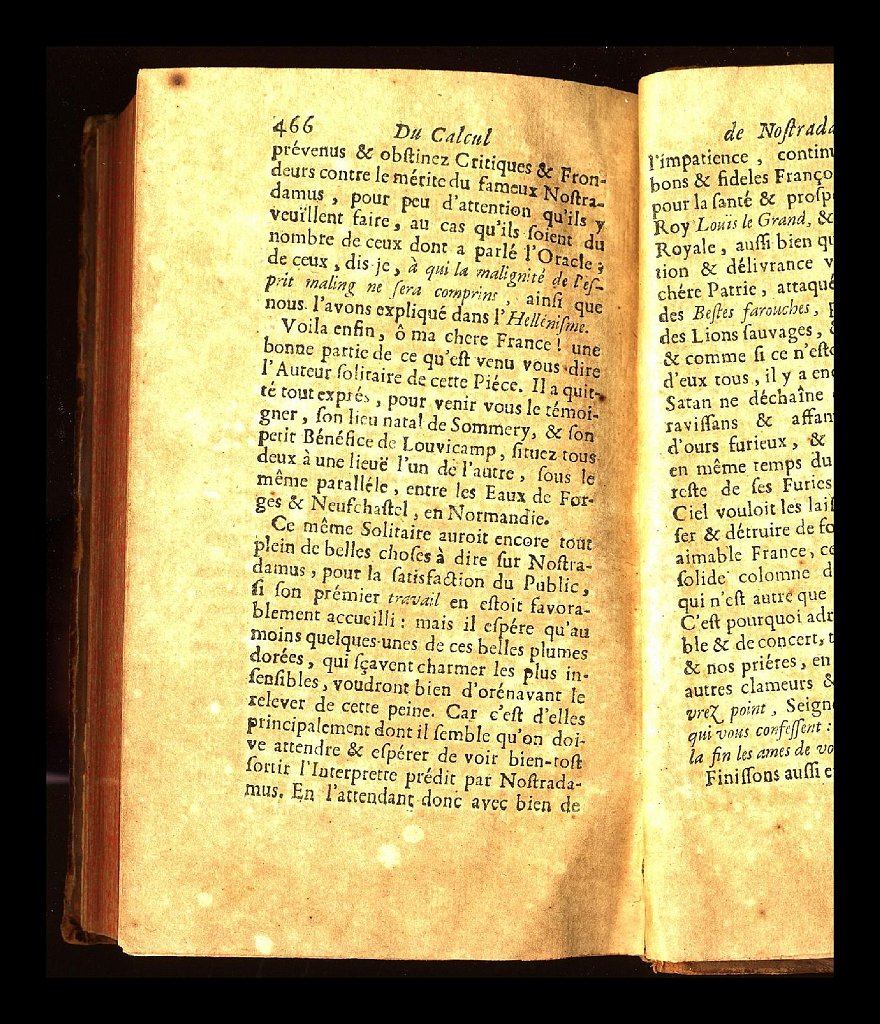 466 Du Calcul
prévenus & obſtinez Critiques & Fron-
deurs contre le mérite du fameux Noſtra-
damus, pour peu d'attention qu'ils y
veuïllent faire, au cas qu'ils ſoient du
nombre de ceux dont a parlé l'Oracle;
de ceux, dis-je, à qui la malignité de l'eſ-
prit maling ne ſera comprins, ainſi que
nous l'avons expliqué dans l'Hellèniſme.
Voila enfin, ô ma chere France! une
bonne partie de ce qu'eſt venu vous dire
l'Auteur ſolitaire de cette Piéce. Il a quit-
té tout exprés, pour venir vous le témoi-
gner, ſon lieu natal de Sommery, & ſon
petit Bénéfice de Louvicamp, ſituez tous
deux à une lieuë l'un de l'autre, ſous le
même paralléle, entre les Eaux de For-
ges & Neufchaſtel, en Normandie.
Ce même Solitaire auroit encore tout
plein de belles choſes à dire ſur Noſtra-
damus, pour la ſatisfaction du Public,
ſi ſon prémier travail en eſtoit favora-
blement accueilli: mais il eſpére qu'au
moins quelques-unes de ces belles plumes
dorées, qui ſçavent charmer les plus in-
ſenſibles, voudront bien d'orénavant le
relever de cette peine. Car c'eſt d'elles
principalement dont il ſemble qu'on doi-
ve attendre & eſpérer de voir bien-toſt
ſortir l'Interprette prédit par Noſtrada-
mus. En l'attendant donc avec bien de
de Noſtrada
l'impatience, continu
bons & fideles Franço
pour la ſanté & proſp
Roy Louïs le Grand, &
Royale, auſſi bien qu
tion & délivrance
chére Patrie, attaqué
des Beſtes farouches,
des Lions ſauvages,
& comme ſi ce n'eſto
d'eux tous, il y a enc
Satan ne déchaîne
raviſſans & affam
d'ours furieux, &
en même temps du
reſte de ſes Furies
Ciel vouloit les laiſ
ſer & détruire de fo
aimable France, ce
ſolide colomne d
qui n'eſt autre que
C'eſt pourquoi adr
ble & de concert, t
& nos priéres, en
autres clameurs &
vrez point, Seign
qui vous confeſſent:
la fin les ames de vo
Finiſſons auſſi e